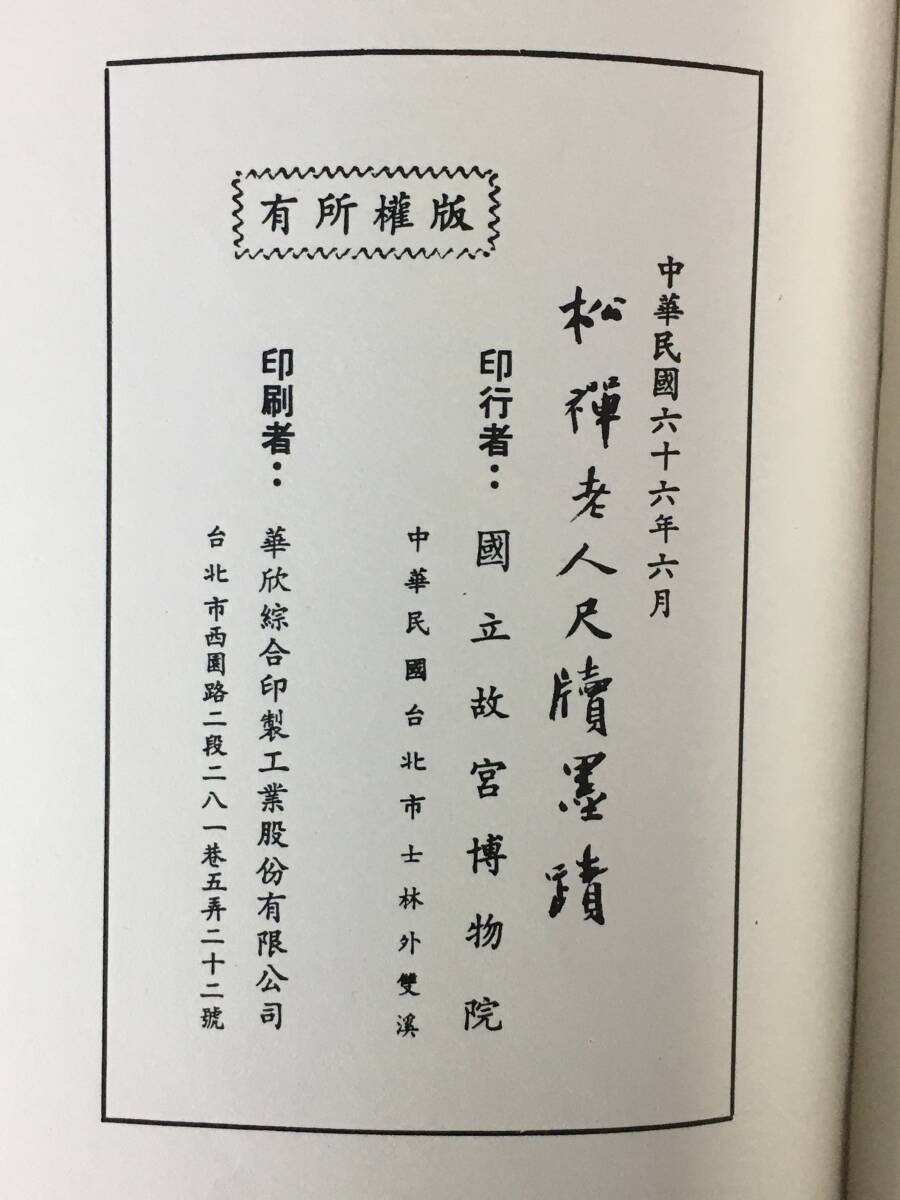 中華民國六十六年六月
松禪老人尺牘墨蹟
印行者：國立故宮博物院
中華民國台北市士林外雙溪
版權所有
印刷者：華欣綜合印製工業股份有限公司
台北市西園路二段二八一巷五弄二十二號